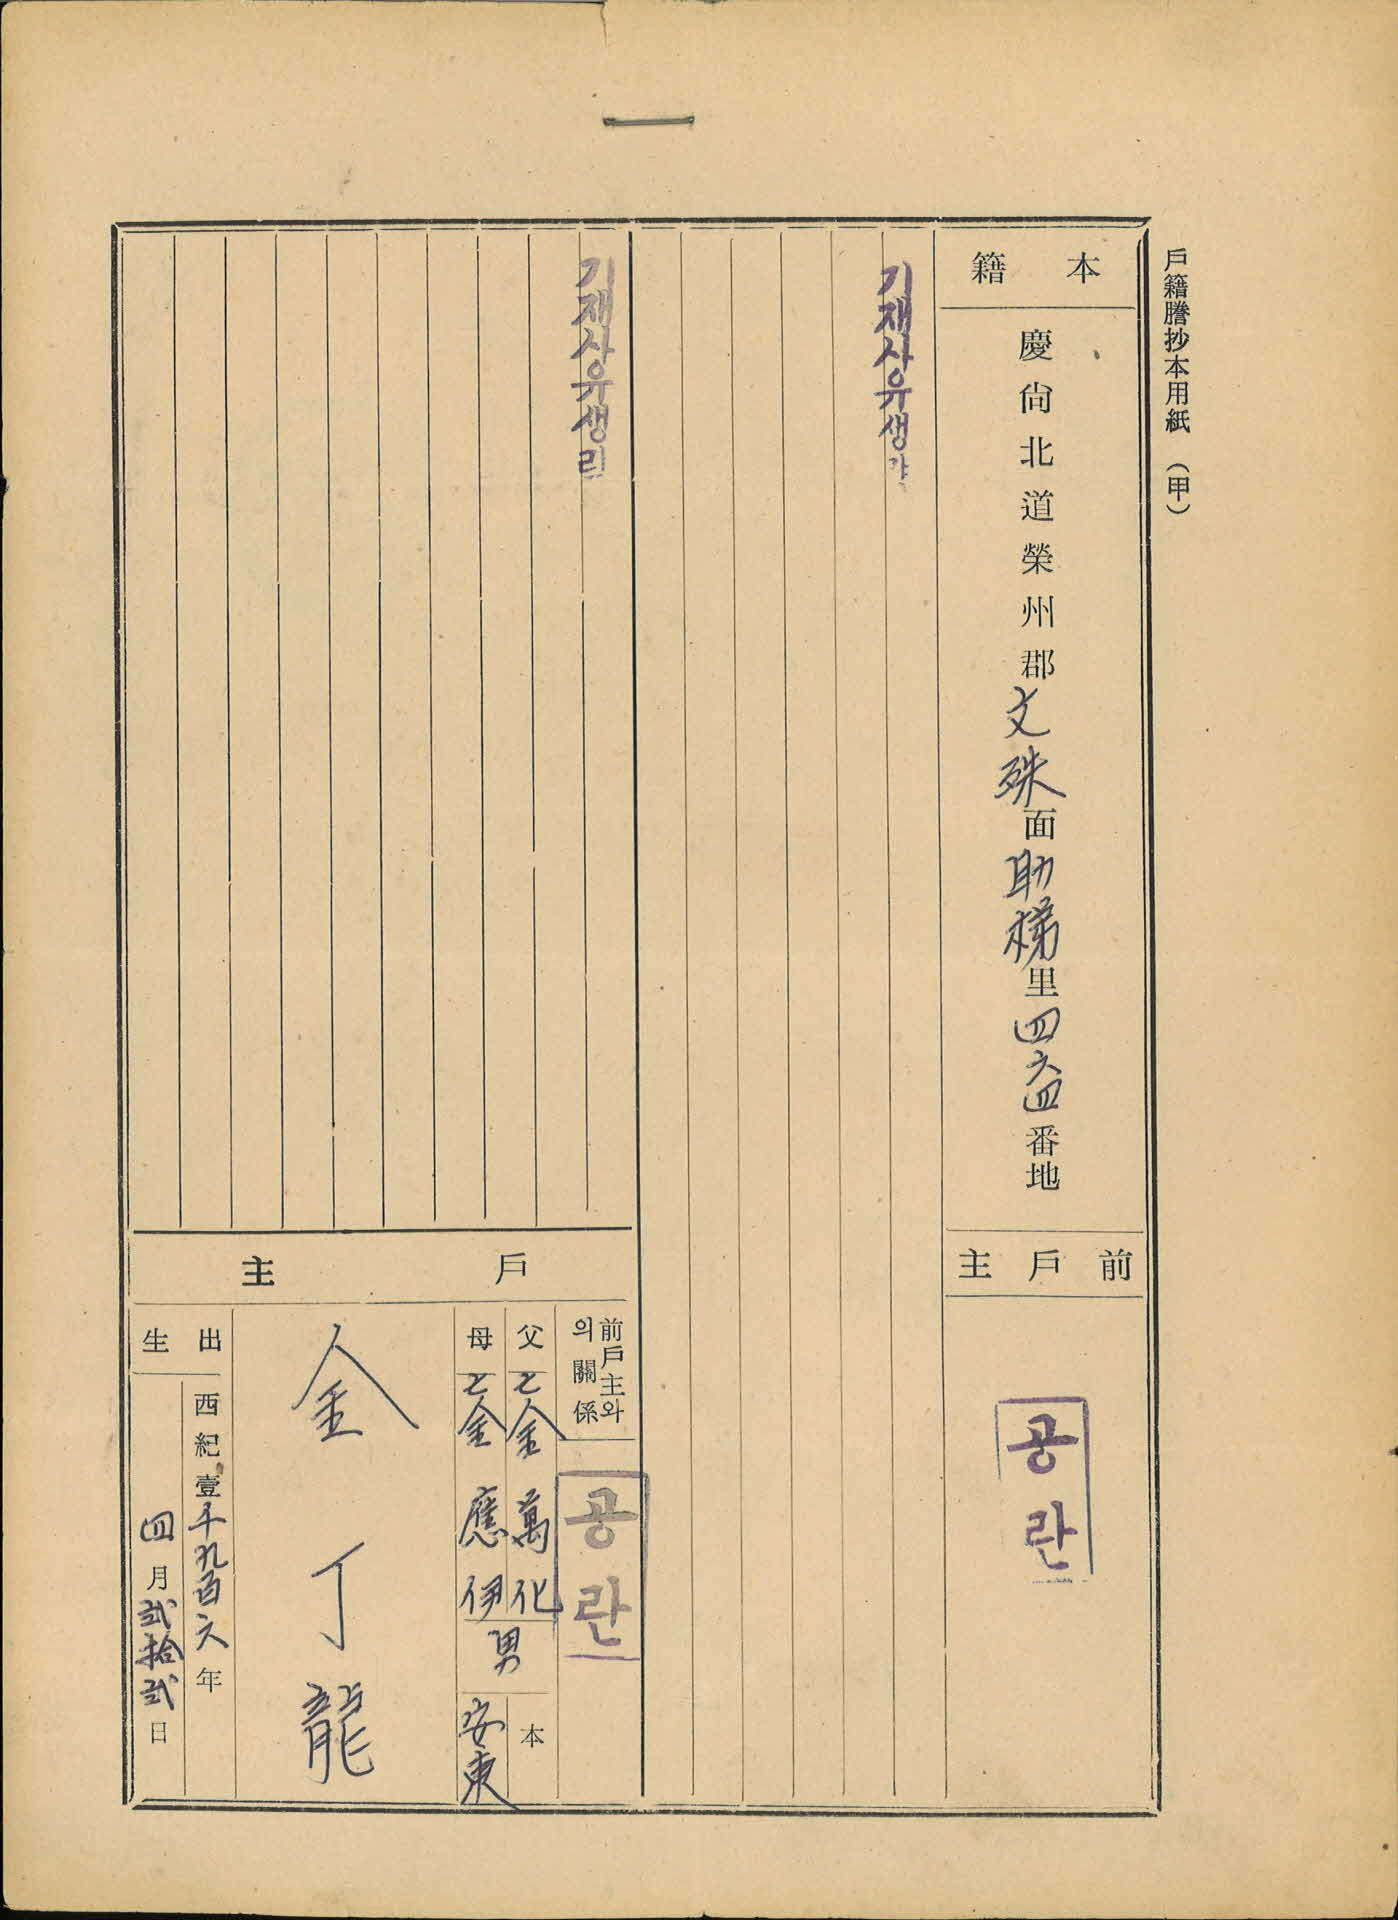 戶籍謄抄本用紙 (甲)
本籍
慶尙北道榮州郡文殊面助梯里四六四番地
前戶主
공란
기재사유생략
기재사유생략
戶主
前戶主와의關係
공란
父 亡金萬化
母 亡金應伊
男
本
安東
金丁龍
出生
西紀壹千九百六年
四月貳拾貳日